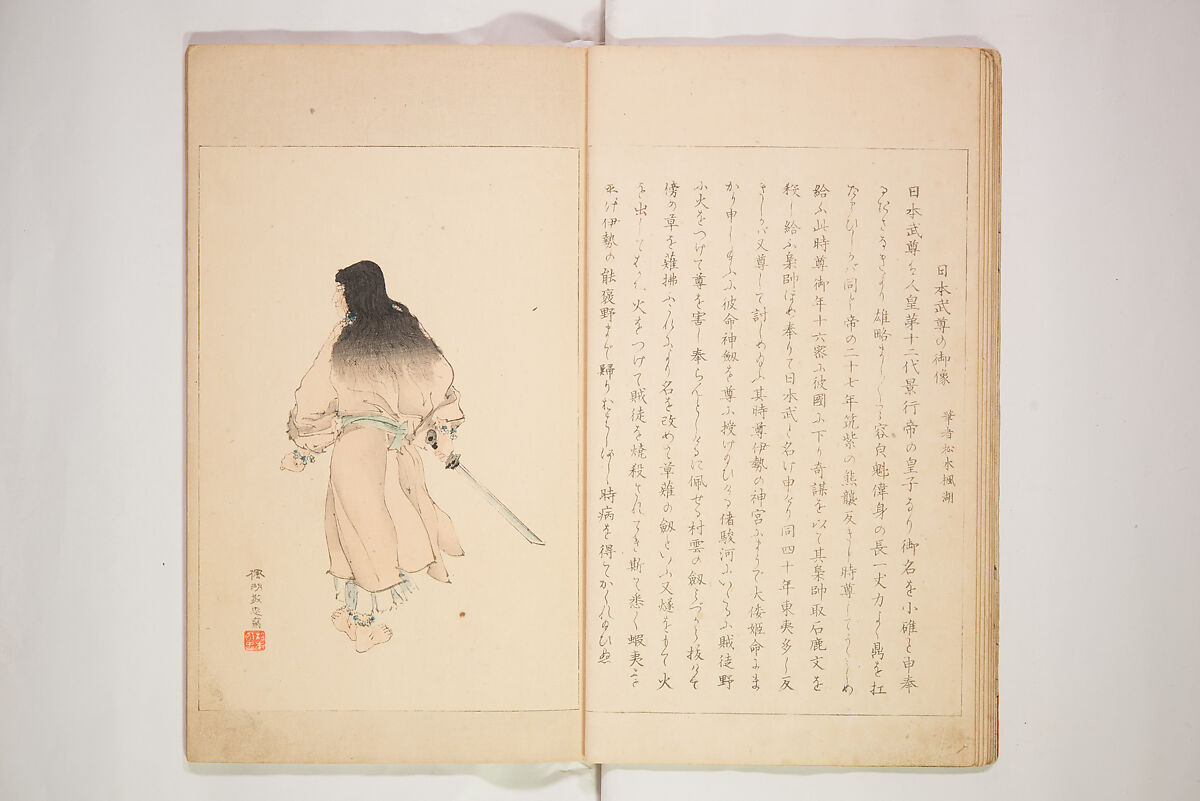 日本武尊の御像
筆者松本楓湖
日本武尊は人皇第十二代景行帝の皇子なり御名を小碓と申奉
雄略まし〳〵て容皃魁偉身の長一丈力よく鼎を扛
同じ帝の二十七年筑紫の熊襲反きし時尊してうたしめ
給ふ此時尊御年十六密に彼國に下り奇謀を以て其梟帥取石鹿文を
殺し給ふ梟帥ほめ奉りて日本武と名け申せり同四十年東夷多く反
きしかバ又尊して討しめ給ふ其時尊伊勢の神宮にまうで大倭姫命にま
かり申し給ふに彼命神劔を尊に授け給ひける偖駿河にいたるに賊徒野
に火をつけて尊を害し奉らんとしけるに佩せる村雲の劔みづから抜けて
傍の草を薙拂ふ名を改めて草薙の劔といふ又燧をもて火
を出してむかひ火をつけて賊徒を焼殺されてき斯て悉く蝦夷を
平け伊勢の能褒野まで歸りむかはしゝ時病を得てかくれ給ひぬ
楓湖敬忠寫